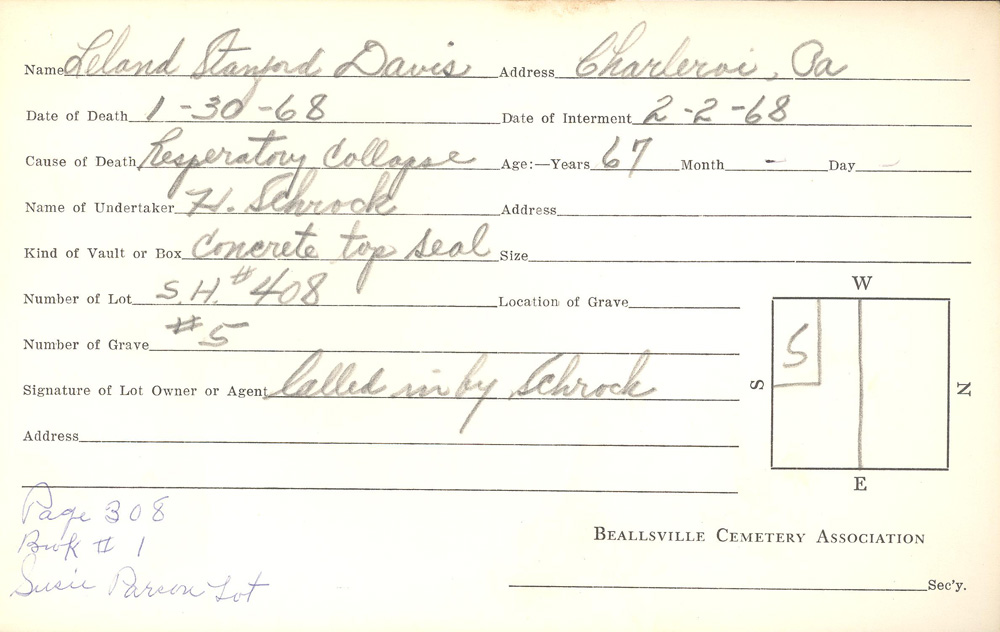 Name Leland Stanford Davis Address Charleroi, Pa
Date of Death 1-30-68 Date of Interment 2-2-68
Cause of Death Resperatory Collapse Age:—Years 67 Month - Day -
Name of Undertaker H. Schrock Address
Kind of Vault or Box Concrete top seal Size
Number of Lot S.H. #408 Location of Grave
Number of Grave #5
Signature of Lot Owner or Agent Called in by Schrock
Address
W
S 5 N
E
Page 308
Book # 1
Susie Parson Lot
BEALLSVILLE CEMETERY ASSOCIATION
Sec'y.